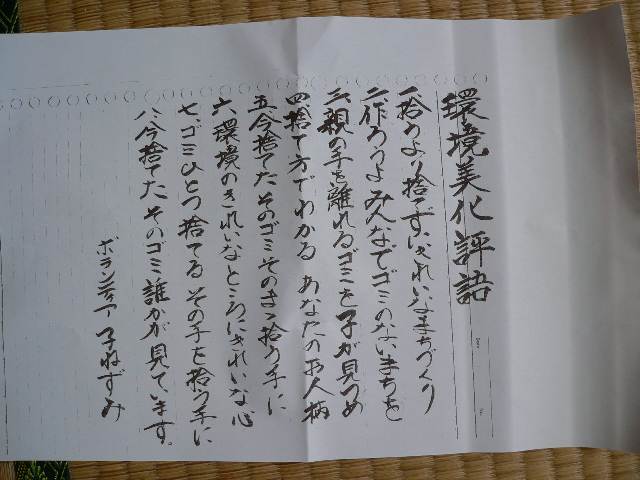 環境美化評語
一、拾うより捨てずにきれいなまちづくり
二、作ろうよみんなでゴミのないまちを
三、親の手を離れるゴミを子が見つめ
四、捨て方でわかる あなたのお人柄
五、今捨てたそのゴミそのさっ拾う手に
六、環境のきれいなところにきれいな心
七、ゴミひとつ捨てる その手を拾う手に
八、今捨てた そのゴミ誰かが見ています。
ボランティア 子ねずみ